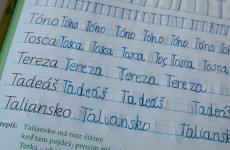 Tóno Tóno Tóno Tóno Tóno Tóno Tóno
Tosca Tosca Tosca Tosca Tosca Tosca
Tereza Tereza Tereza Tereza
Tadeáš Tadeáš Tadeáš Tadeáš
Taliansko Taliansko Taliansko
Taliansko má tvar čižmy
keď tam pojdeš, prosím